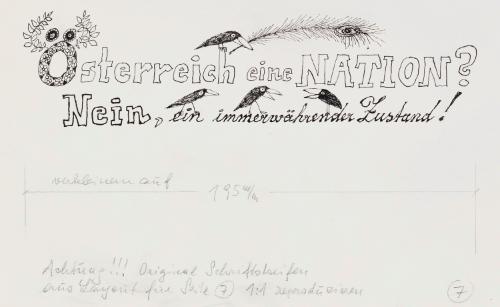 Österreich eine NATION?
Nein, ein immerwährender Zustand!
verkleinern auf
195 m/m
Achtung!!! Original Schriftstreifen
aus Layout für Seite 7 1:1 reproduzieren
7